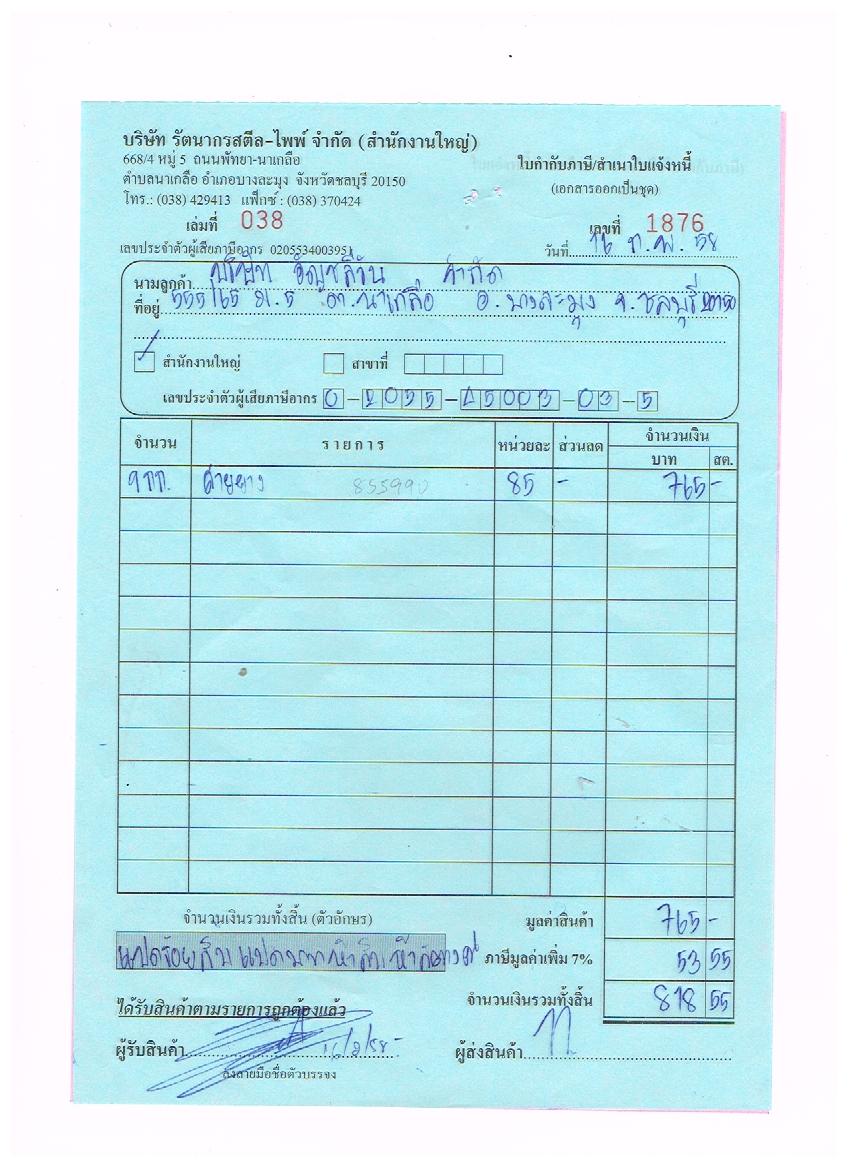 บริษัท รัตนากรสตีล-ไพพ์ จำกัด (สำนักงานใหญ่)
668/4 หมู่ 5 ถนนพัทยา-นาเกลือ
ตำบลนาเกลือ อำเภอบางละมุง จังหวัดชลบุรี 20150
โทร.: (038) 429413 แฟ็กซ์ : (038) 370424
ใบกำกับภาษี/สำเนาใบแจ้งหนี้
(เอกสารออกเป็นชุด)
เล่มที่ 038
เลขที่ 1876
เลขประจำตัวผู้เสียภาษีอากร 020553400395
วันที่ 16 ก.พ. 58
นามลูกค้า บริษัท จำกัด
ที่อยู่ 555/65 ม.5 ต.นาเกลือ อ.บางละมุง จ.ชลบุรี 20150
สำนักงานใหญ่ สาขาที่
เลขประจำตัวผู้เสียภาษีอากร 0-2055-45003-03-5
จำนวน รายการ หน่วยละ ส่วนลด จำนวนเงิน
บาท สต.
9 กก. สายยาง 855990 85 - 765 -
จำนวนเงินรวมทั้งสิ้น (ตัวอักษร)
มูลค่าสินค้า 765 -
แปดร้อยสิบแปดบาทห้าสิบห้าสตางค์ ภาษีมูลค่าเพิ่ม 7% 53 55
จำนวนเงินรวมทั้งสิ้น 818 55
ได้รับสินค้าตามรายการถูกต้องแล้ว
ผู้รับสินค้า 16/2/58
ผู้ส่งสินค้า
ลงลายมือชื่อตัวบรรจง